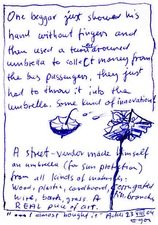 One beggar just showed his
hand without fingers and
then used a turned around
umbrella to collect money from
the bus passengers, they just
had to throw it into the
umbrella. Some kind of innovation!
A street-vendor made himself
an umbrella (for sun protection)
from all kinds of materials:
wood, plastic, cardboard, corrugated
wire, bark, grass. A branch
REAL piece of art.
"... I almost bought it" Addis 23 VIII 04